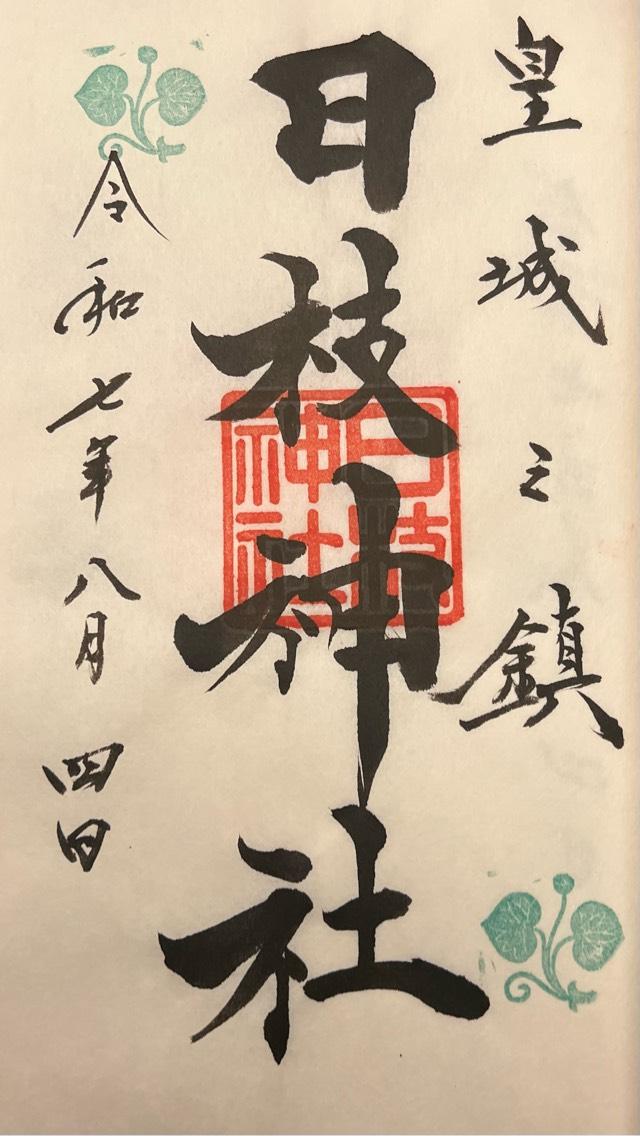 皇城之鎮
日枝神社
日枝神社
令和七年八月四日